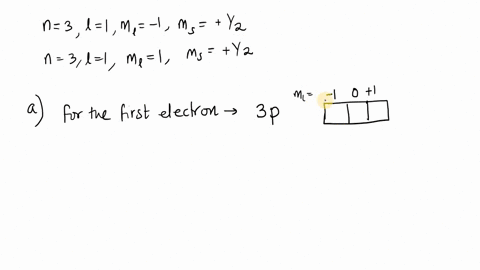 n=3, l=1, mₗ=-1, mₛ=+1/2
n=3, l=1, mₗ=1, mₛ=+1/2
a) For the first electron → 3p mₗ= -1 0 +1